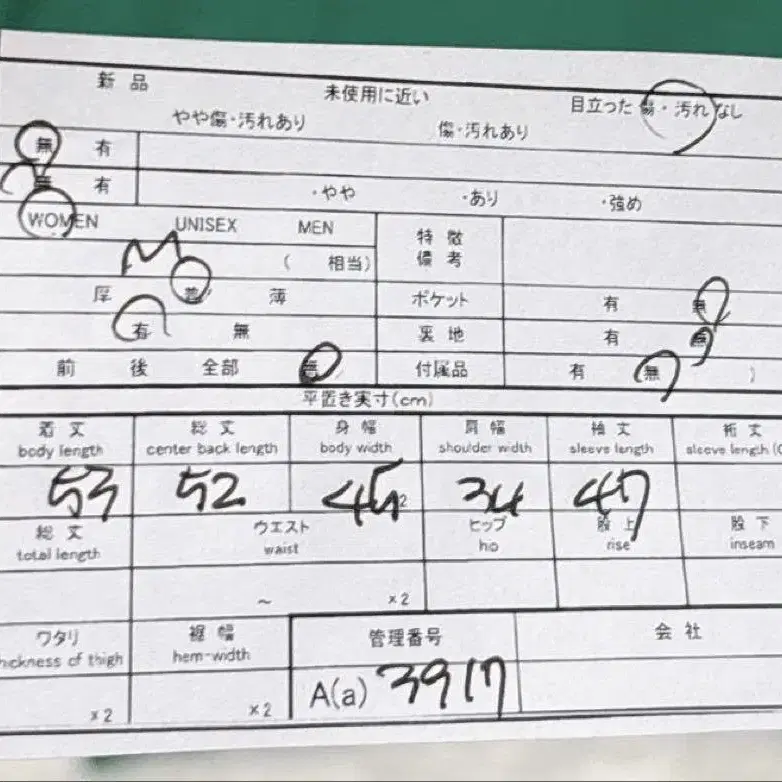 新品 未使用に近い 目立った傷・汚れなし
やや傷・汚れあり 傷・汚れあり
無 有
無 有 ・やや ・あり ・強め
WOMEN UNISEX MEN 特徴
備考
M ( 相当)
厚 普 薄 ポケット 有 無
有 無 裏地 有 無
前 後 全部 無 付属品 有 (無 )
平置き実寸(cm)
着丈 総丈 身幅 肩幅 袖丈 裄丈
body length center back length body width shoulder width sleeve length sleeve length(C
53 52 45 x2 34 47
総丈 ウエスト ヒップ 股上 股下
total length waist hip rise inseam
~ x2
ワタリ 裾幅 管理番号 会社
hickness of thigh hem-width
x2 x2 A(a) 3917